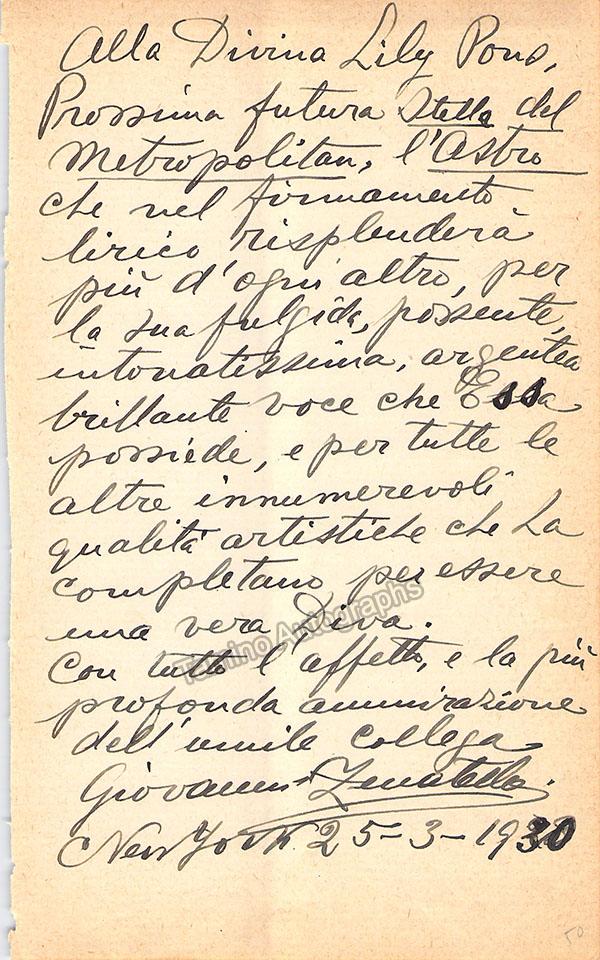 Alla Divina Lily Pons,
Prossima futura Stella del
Metropolitan, l'Astro
che nel firmamento
lirico risplenderà
più d'ogni altro, per
la sua fulgida, possente,
intonatissima, argentea
brillante voce che Essa
possiede, e per tutte le
altre innumerevoli
qualità artistiche che La
completano per essere
una vera Diva.
Con tutto l'affetto, e la più
profonda ammirazione
dell'umile collega
Giovanni Zenatello.
New York 25-3-1930
Tamino Autographs
50